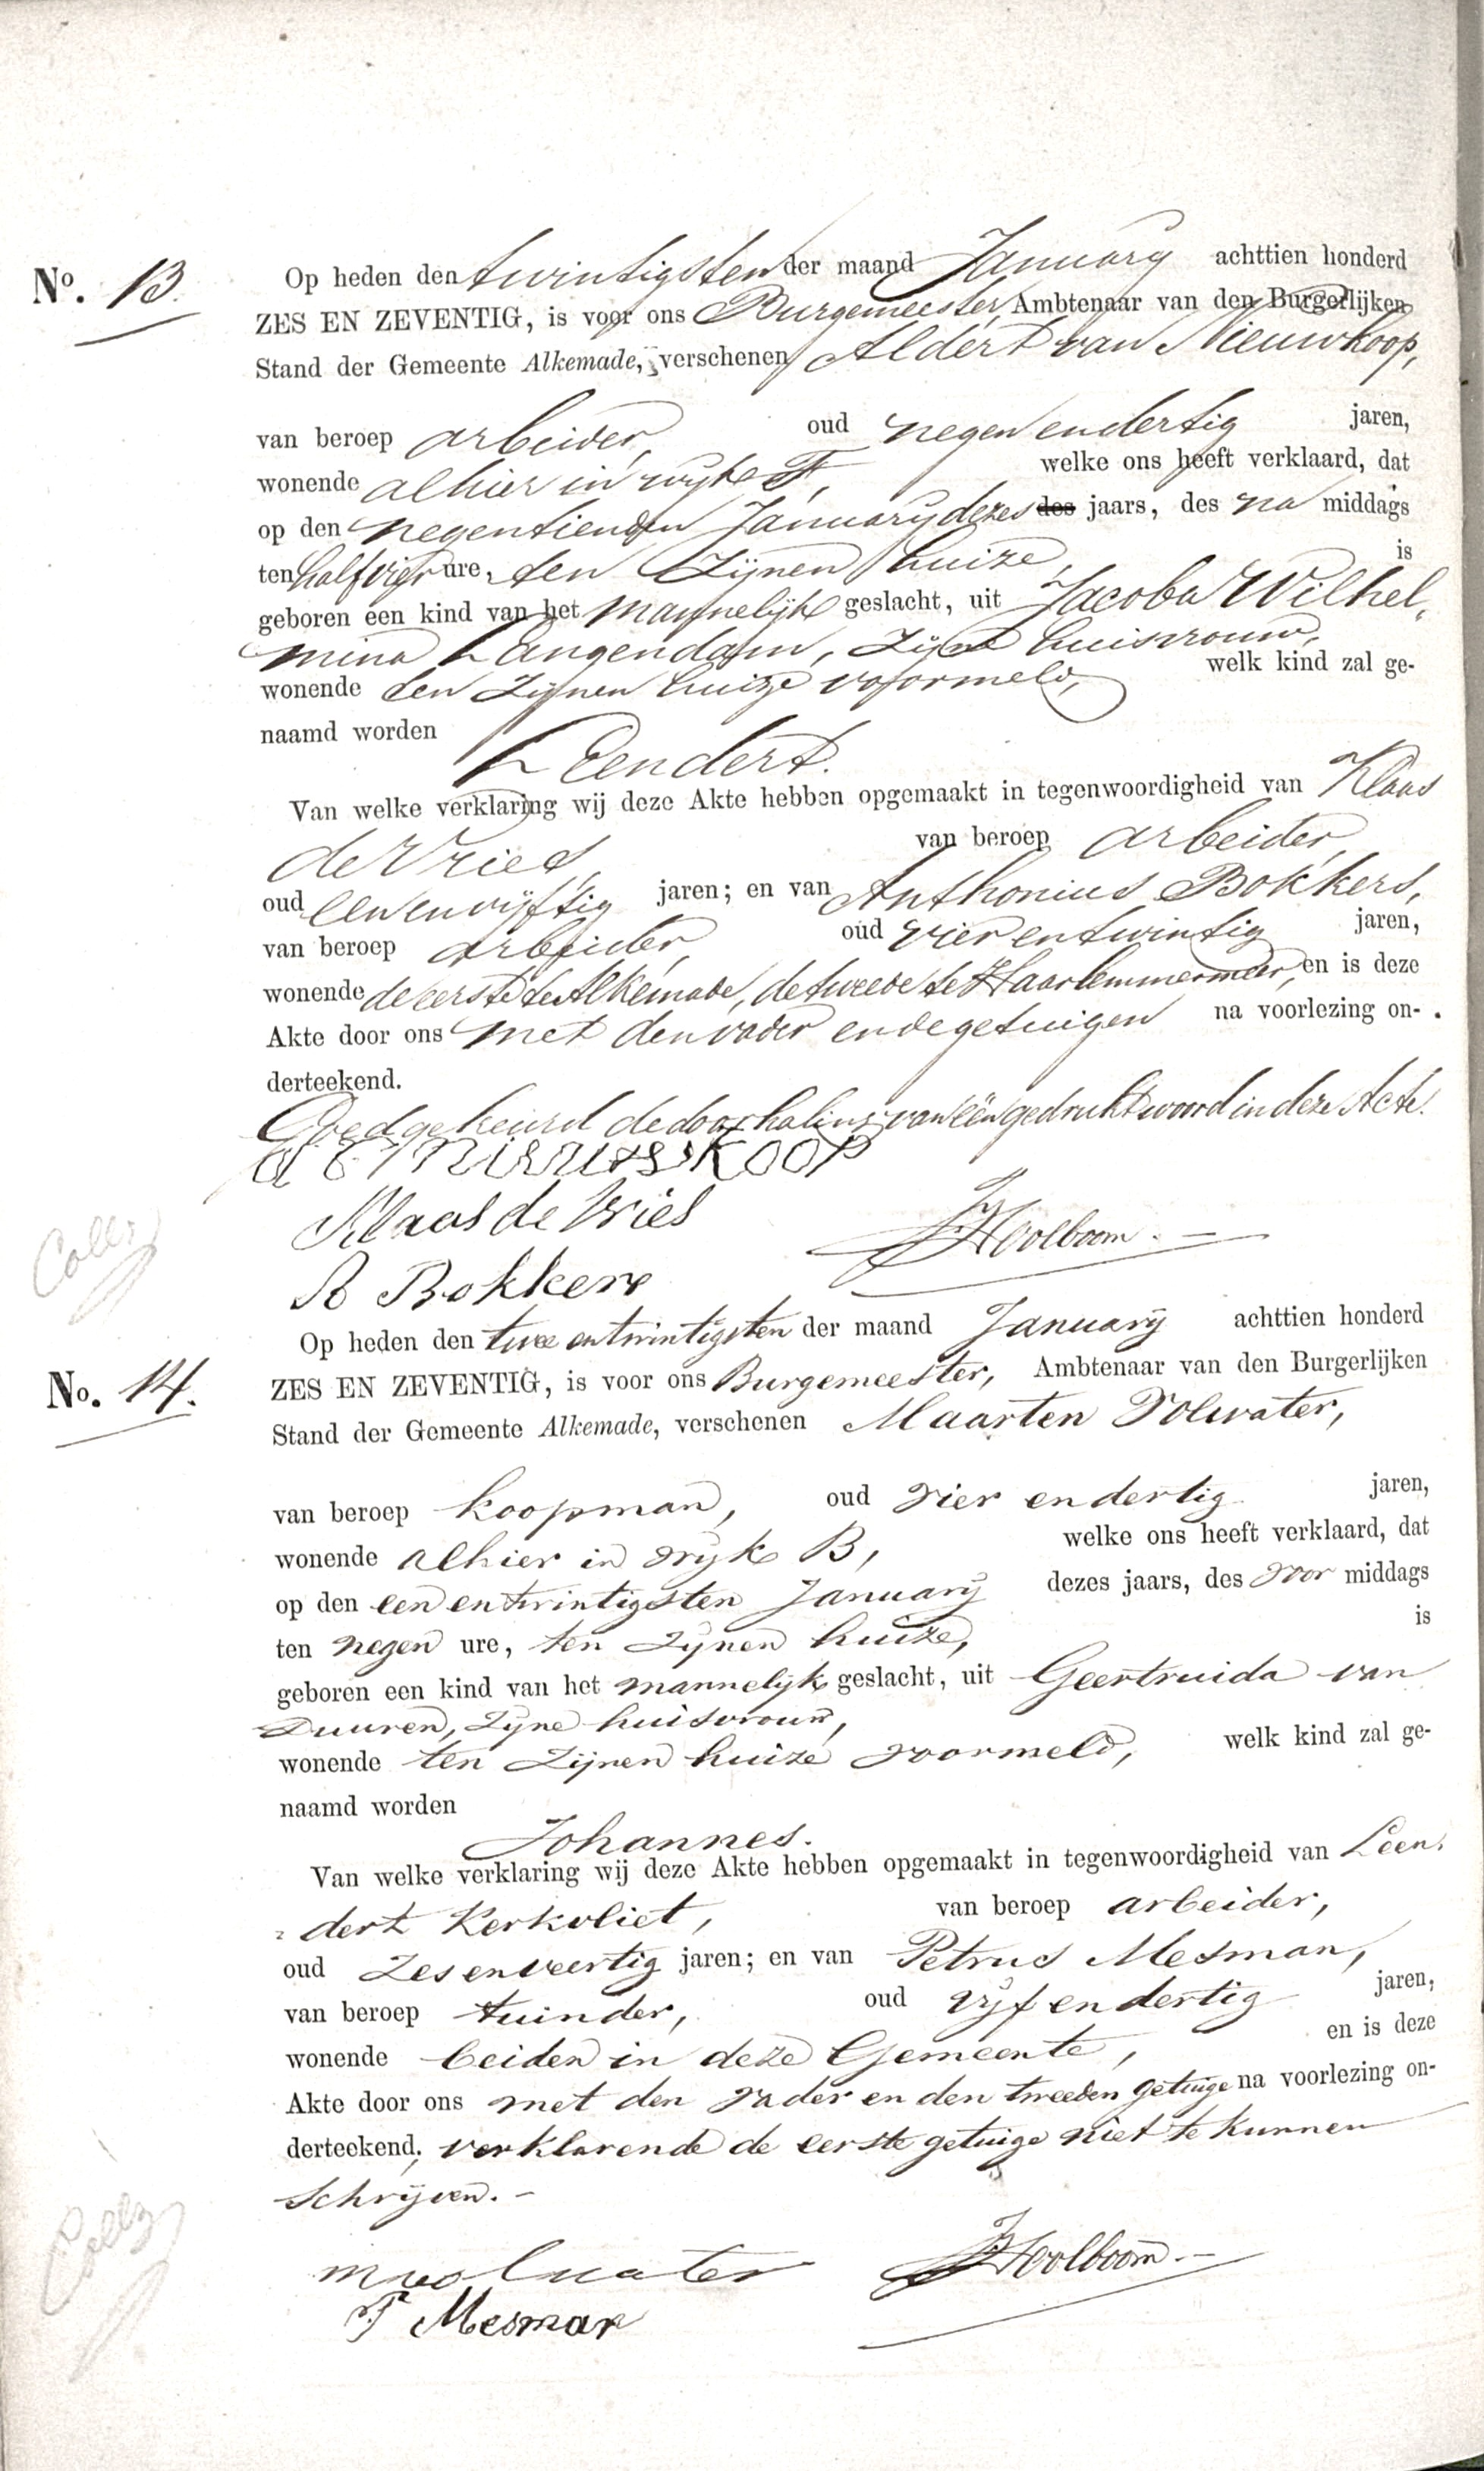 No. 13.
Op heden den twintigsten der maand January achttien honderd
ZES EN ZEVENTIG, is voor ons Burgemeester, Ambtenaar van den Burgerlijken
Stand der Gemeente Alkemade, verschenen Aldert van Nieuwkoop,
van beroep arbeider, oud negen en dertig jaren,
wonende alhier in wyk F, welke ons heeft verklaard, dat
op den negentienden January dezes des jaars, des na middags
ten half vier ure, ten zijnen huize, is
geboren een kind van het mannelijk geslacht, uit Jacoba Wilhel-
mina Langendam, zijne huisvrouw,
wonende ten zijnen huize voormeld, welk kind zal ge-
naamd worden
Leendert.
Van welke verklaring wij deze Akte hebben opgemaakt in tegenwoordigheid van Klaas
de Vries, van beroep arbeider,
oud een en vijftig jaren; en van Anthonius Bokkers,
van beroep arbeider, oud vier en twintig jaren,
wonende de eerste te Alkemade, de tweede te Haarlemmermeer, en is deze
Akte door ons met den vader en de getuigen na voorlezing on-
derteekend.
Goedgekeurd de doorhaling van één gedrukt woord in deze Acte.
Klaas de Vries
Hoolboom.
A Bokkers
Coll
No. 14.
Op heden den twee en twintigsten der maand January achttien honderd
ZES EN ZEVENTIG, is voor ons Burgemeester, Ambtenaar van den Burgerlijken
Stand der Gemeente Alkemade, verschenen Maarten Volwater,
van beroep koopman, oud vier en dertig jaren,
wonende alhier in wyk B, welke ons heeft verklaard, dat
op den een en twintigsten January dezes jaars, des voor middags
ten negen ure, ten zijnen huize, is
geboren een kind van het mannelijk geslacht, uit Geertruida van
Duuren, zijne huisvrouw,
wonende ten zijnen huize voormeld, welk kind zal ge-
naamd worden
Johannes.
Van welke verklaring wij deze Akte hebben opgemaakt in tegenwoordigheid van Leen-
dert Kerkvliet, van beroep arbeider,
oud zes en veertig jaren; en van Petrus Mesman,
van beroep tuinder, oud vijf en dertig jaren,
wonende beiden in deze Gemeente, en is deze
Akte door ons met den vader en den tweeden getuige na voorlezing on-
derteekend, verklarende de eerste getuige niet te kunnen
schrijven.-
m volwater
Hoolboom.
P Mesman
Coll